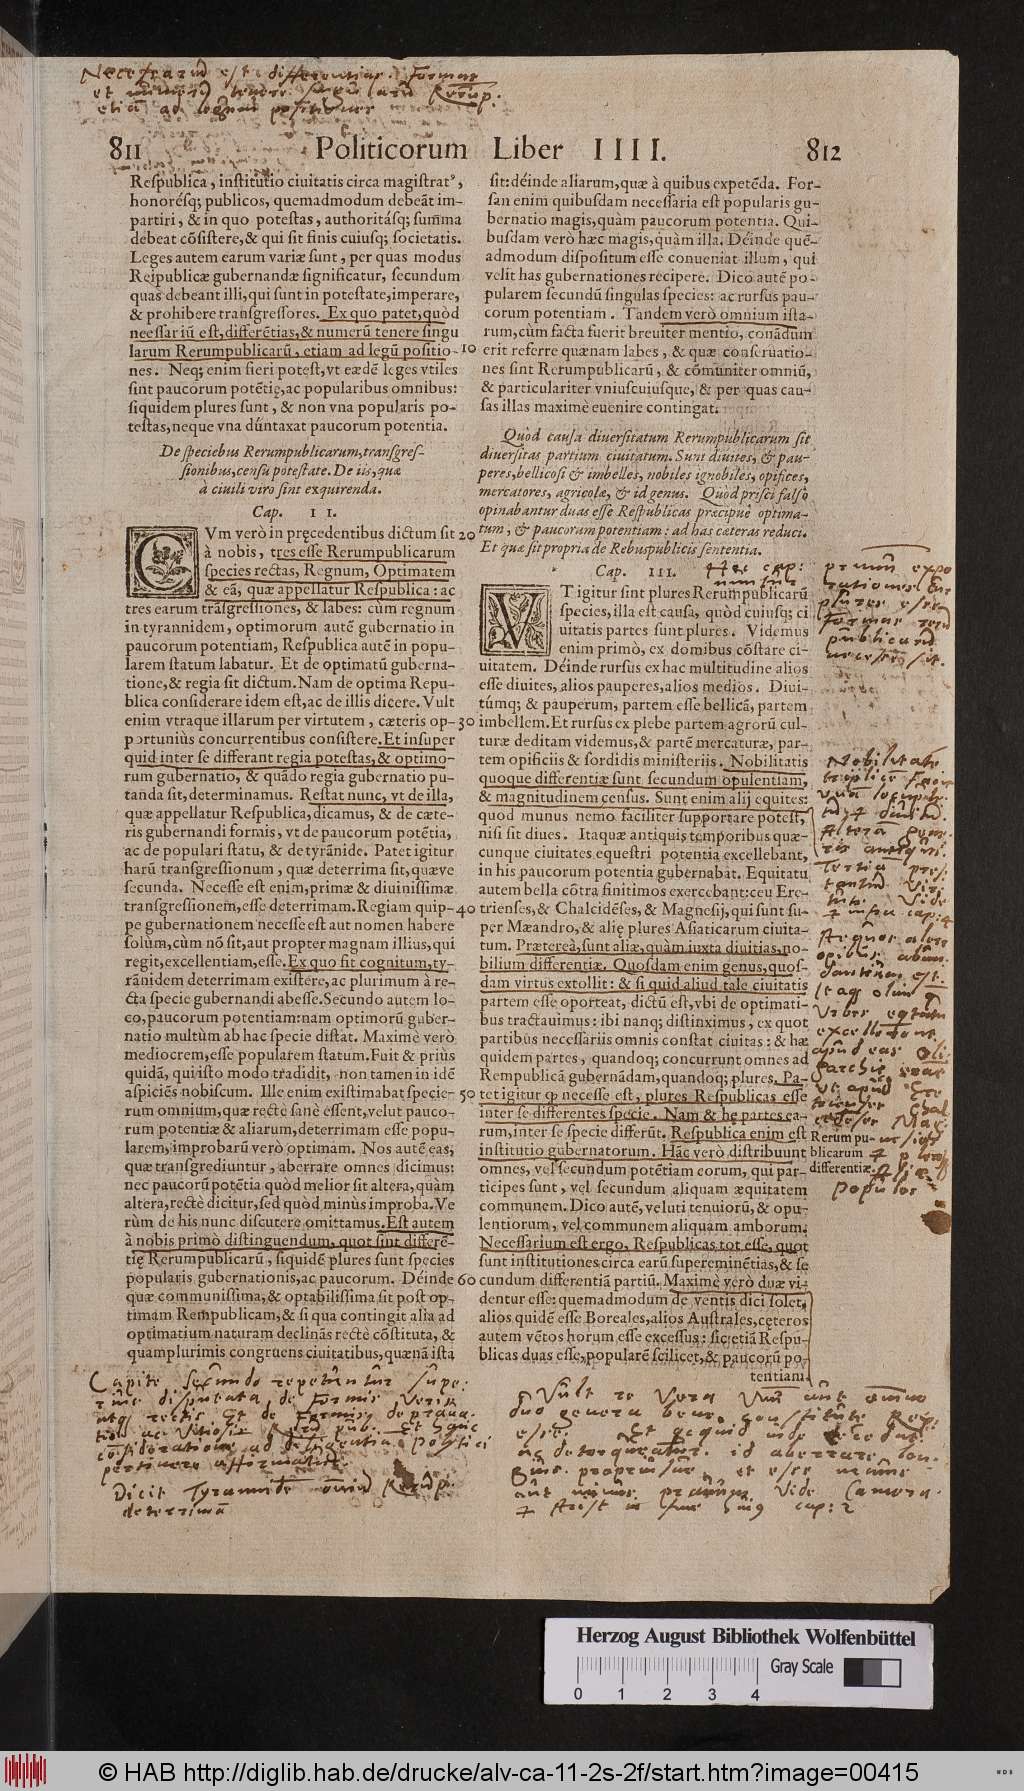 Necessariũ est differentias formas
et numerũ tenere singularũ Rerump.
etiã ad legum positiones
811 Politicorum Liber IIII. 812
Respublica, institutio ciuitatis circa magistratꝰ,
honorésq; publicos, quemadmodum debeãt im-
partiri, & in quo potestas, authoritásq; summa
debeat cõsistere, & qui sit finis cuiusq; societatis.
Leges autem earum variæ sunt, per quas modus
Reipublicæ gubernandæ significatur, secundum
quas debeant illi, qui sunt in potestate, imperare,
& prohibere transgressores. Ex quo patet, quòd
neessariũ est, differẽtias, & numerũ tenere singu
larum Rerumpublicarũ, etiam ad legũ positio-
nes. Neq; enim fieri potest, vt eædẽ leges vtiles
sint paucorum potẽtię, ac popularibus omnibus:
siquidem plures sunt, & non vna popularis po-
testas, neque vna dúntaxat paucorum potentia.
De speciebus Rerumpublicarum, transgres-
sionibus, censu potestate. De iis, quæ
à ciuili viro sint exquirenda.
Cap. II.
CVm verò in pręcedentibus dictum sit
à nobis, tres esse Rerumpublicarum
species rectas, Regnum, Optimatem
& eã, quæ appellatur Respublica: ac
tres earum trãsgressiones, & labes: cùm regnum
in tyrannidem, optimorum autẽ gubernatio in
paucorum potentiam, Respublica autẽ in popu-
larem statum labatur. Et de optimatũ guberna-
tione, & regia sit dictum. Nam de optima Repu-
blica considerare idem est, ac de illis dicere. Vult
enim vtraque illarum per virtutem, cæteris op-
portuniùs concurrentibus consistere. Et insuper
quid inter se differant regia potestas, & optimo-
rum gubernatio, & quãdo regia gubernatio pu-
tanda sit, determinamus. Restat nunc, vt de illa,
quæ appellatur Respublica, dicamus, & de cæte-
ris gubernandi formis, vt de paucorum potẽtia,
ac de populari statu, & de tyrãnide. Patet igitur
harũ transgressionum, quæ deterrima sit, quæve
secunda. Necesse est enim, primæ & diuinissimæ
transgressionem, esse deterrimam. Regiam quip-
pe gubernationem necesse est aut nomen habere
solùm, cùm nõ sit, aut propter magnam illius, qui
regit, excellentiam, esse. Ex quo fit cognitum, ty-
rãnidem deterrimam existere, ac plurimum à re-
cta specie gubernandi abesse. Secundo autem lo-
co, paucorum potentiam: nam optimorũ guber-
natio multùm ab hac specie distat. Maximè verò
mediocrem, esse popularem statum. Fuit & priùs
quidã, qui isto modo tradidit, non tamen in idẽ
aspiciẽs nobiscum. Ille enim existimabat specie-
rum omnium, quæ rectè sanè essent, velut pauco-
rum potentiæ & aliarum, deterrimam esse popu-
larem, improbarũ verò optimam. Nos autẽ eas,
quæ transgrediuntur, aberrare omnes dicimus:
nec paucorũ potẽtia quòd melior sit altera, quàm
altera, rectè dicitur, sed quòd minùs improba. Ve
rùm de his nunc discutere omittamus. Est autem
à nobis primò distinguendum, quot sint differẽ-
tię Rerumpublicarũ, siquidẽ plures sunt species
popularis gubernationis, ac paucorum. Déinde
quæ communissima, & optabilissima sit post op-
timam Rempublicam, & si qua contingit alia ad
optimatium naturam declinãs rectè cõstituta, &
quamplurimis congruens ciuitatibus, quænã ista
10
20
30
40
50
60
sit: déinde aliarum, quæ à quibus expetẽda. For-
san enim quibusdam necessaria est popularis gu-
bernatio magis, quàm paucorum potentia. Qui-
busdam verò hæc magis, quàm illa. Déinde quẽ-
admodum dispositum esse conueniat illum, qui
velit has gubernationes recipere. Dico autẽ po-
pularem secundũ singulas species: ac rursus pau-
corum potentiam. Tandem verò omnium ista-
rum, cùm facta fuerit breuiter mentio, conãdum
erit referre quænam labes, & quæ conseruatio-
nes sint Rerumpublicarũ, & cõmuniter omniũ,
& particulariter vniuscuiusque, & per quas cau-
sas illas maximè euenire contingat.
Quòd causa diuersitatum Rerumpublicarum sit
diuersitas partium ciuitatum. Sunt diuites, & pau-
peres, bellicosi & imbelles, nobiles ignobiles, opifices,
mercatores, agricolæ, & id genus. Quòd prisci falsò
opinabantur duas esse Respublicas præcipuè optima-
tum, & paucorum potentiam: ad has cæteras reduci.
Et quæ sit propria de Rebuspublicis sententia.
Cap. III.
VT igitur sint plures Rerumpublicarũ
species, illa est causa, quòd cuiusq; ci
uitatis partes sunt plures. Videmus
enim primò, ex domibus cõstare ci-
uitatem. Déinde rursus ex hac multitudine alios
esse diuites, alios pauperes, alios medios. Diui-
túmq; & pauperum, partem esse bellicã, partem
imbellem. Et rursus ex plebe partem agrorũ cul-
turæ deditam videmus, & partẽ mercaturæ, par-
tem opificiis & sordidis ministeriis. Nobilitatis
quoque differentiæ sunt secundum opulentiam,
& magnitudinem census. Sunt enim alij equites:
quod munus nemo faciliter supportare potest,
nisi sit diues. Itaquæ antiquis temporibus quæ-
cunque ciuitates equestri potentia excellebant,
in his paucorum potentia gubernabat. Equitatu
autem bella cõtra finitimos exercebant: ceu Ere-
trienses, & Chalcidẽses, & Magnesij, qui sunt su-
per Mæandro, & alię plures Asiaticarum ciuita-
tum. Prætereà, sunt aliæ, quàm iuxta diuitias, no-
bilium differentiæ. Quosdam enim genus, quos-
dam virtus extollit: & si quid aliud tale ciuitatis
partem esse oporteat, dictũ est, vbi de optimati-
bus tractauimus: ibi nanq; distinximus, ex quot
partibus necessariis omnis constat ciuitas: & hæ
quidem partes, quandoq; concurrunt omnes ad
Rempublicã gubernãdam, quandoq; plures. Pa-
tet igitur ꝙ necesse est, plures Respublicas esse
inter se differentes specie. Nam & hę partes ea-
rum, inter se specie differũt. Respublica enim est
institutio gubernatorum. Hãc verò distribuunt
omnes, vel secundum potẽtiam eorum, qui par-
ticipes sunt, vel secundum aliquam æquitatem
communem. Dico autẽ, veluti tenuiorũ, & opu-
lentiorum, vel communem aliquam amborum.
Necessarium est ergo, Respublicas tot esse, quot
sunt institutiones circa earũ supereminẽtias, & se
cundum differentiã partiũ. Maximè verò duæ vi-
dentur esse: quemadmodum de ventis dici solet,
alios quidẽ esse Boreales, alios Australes, cęteros
autem vẽtos horum esse excessus: sic etiã Respu-
blicas duas esse, popularẽ scilicet, & paucorũ po-
tentiam.
Rerum pu-
blicarum
differentiæ.
Nobilitatis
Capite secundo repetuntur supe-
Dicit Tyrannidẽ omniũ Rerump.
deterrimã
Herzog August Bibliothek Wolfenbüttel
Gray Scale
0 1 2 3 4
© HAB http://diglib.hab.de/drucke/alv-ca-11-2s-2f/start.htm?image=00415